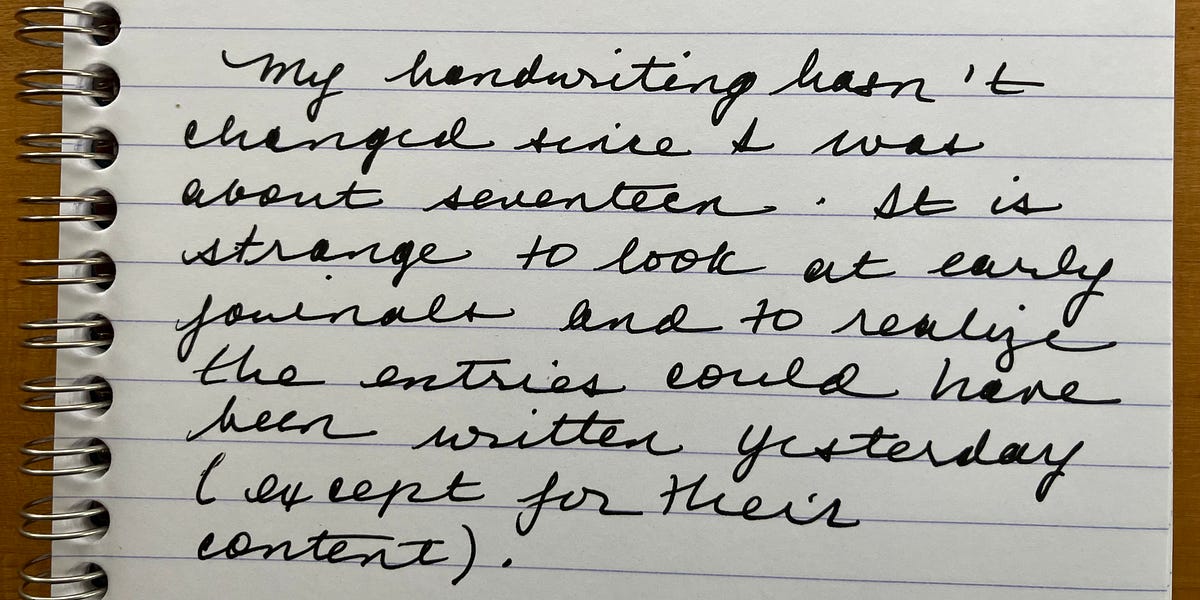 My handwriting hasn't
changed since I was
about seventeen. It is
strange to look at early
journals and to realize
the entries could have
been written yesterday
(except for their
content).